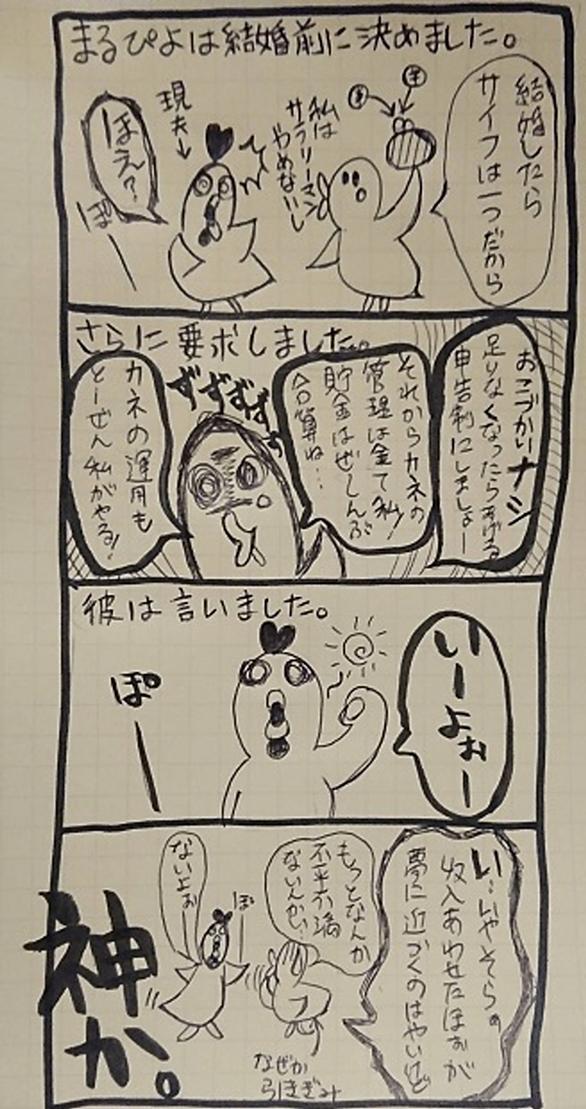 まるぴよは結婚前に決めました。
結婚したら
サイフは一つだから
私は
サラリーマン
やめないし
現夫→
ほえ?
ぽー
さらに要求しました。
おこづかいナシ
足りなくなったらあげる
申告制にしましょー
それからカネの
管理は全て私!
貯金はぜーんぶ
合算ね…
ずずずずず
カネの運用も
とーぜん私がやる!
彼は言いました。
いーよぉー
ぽー
い…いやそらぁ
収入あわせたほぉが
夢に近づくのはやいけど
もっとなんか
不平不満
ないんかい
ないよぉ
ぽー
なぜか
引きぎみ
神か。